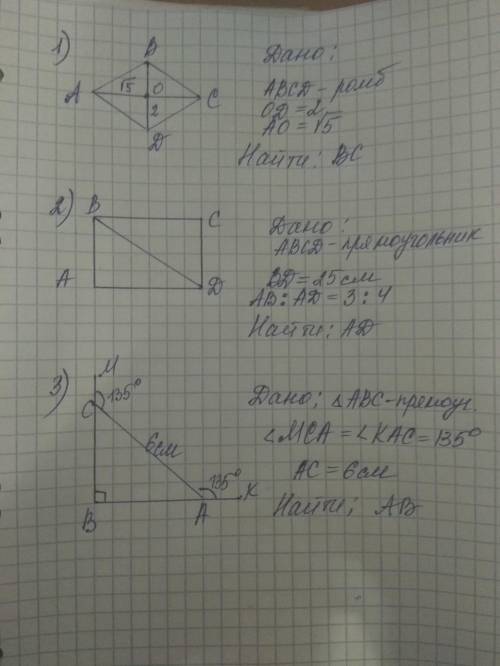 1)
B
A √5 O C
2
D
Дано:
ABCD - ромб
OD = 2
AO = √5
Найти: BC
2)
B C
A D
Дано:
ABCD - прямоугольник
BD = 25 см
AB : AD = 3 : 4
Найти: AD
3)
M
C 135°
6см
135°
B A K
Дано: △ABC - прямоуг.
∠MCA = ∠KAC = 135°
AC = 6см
Найти: AB